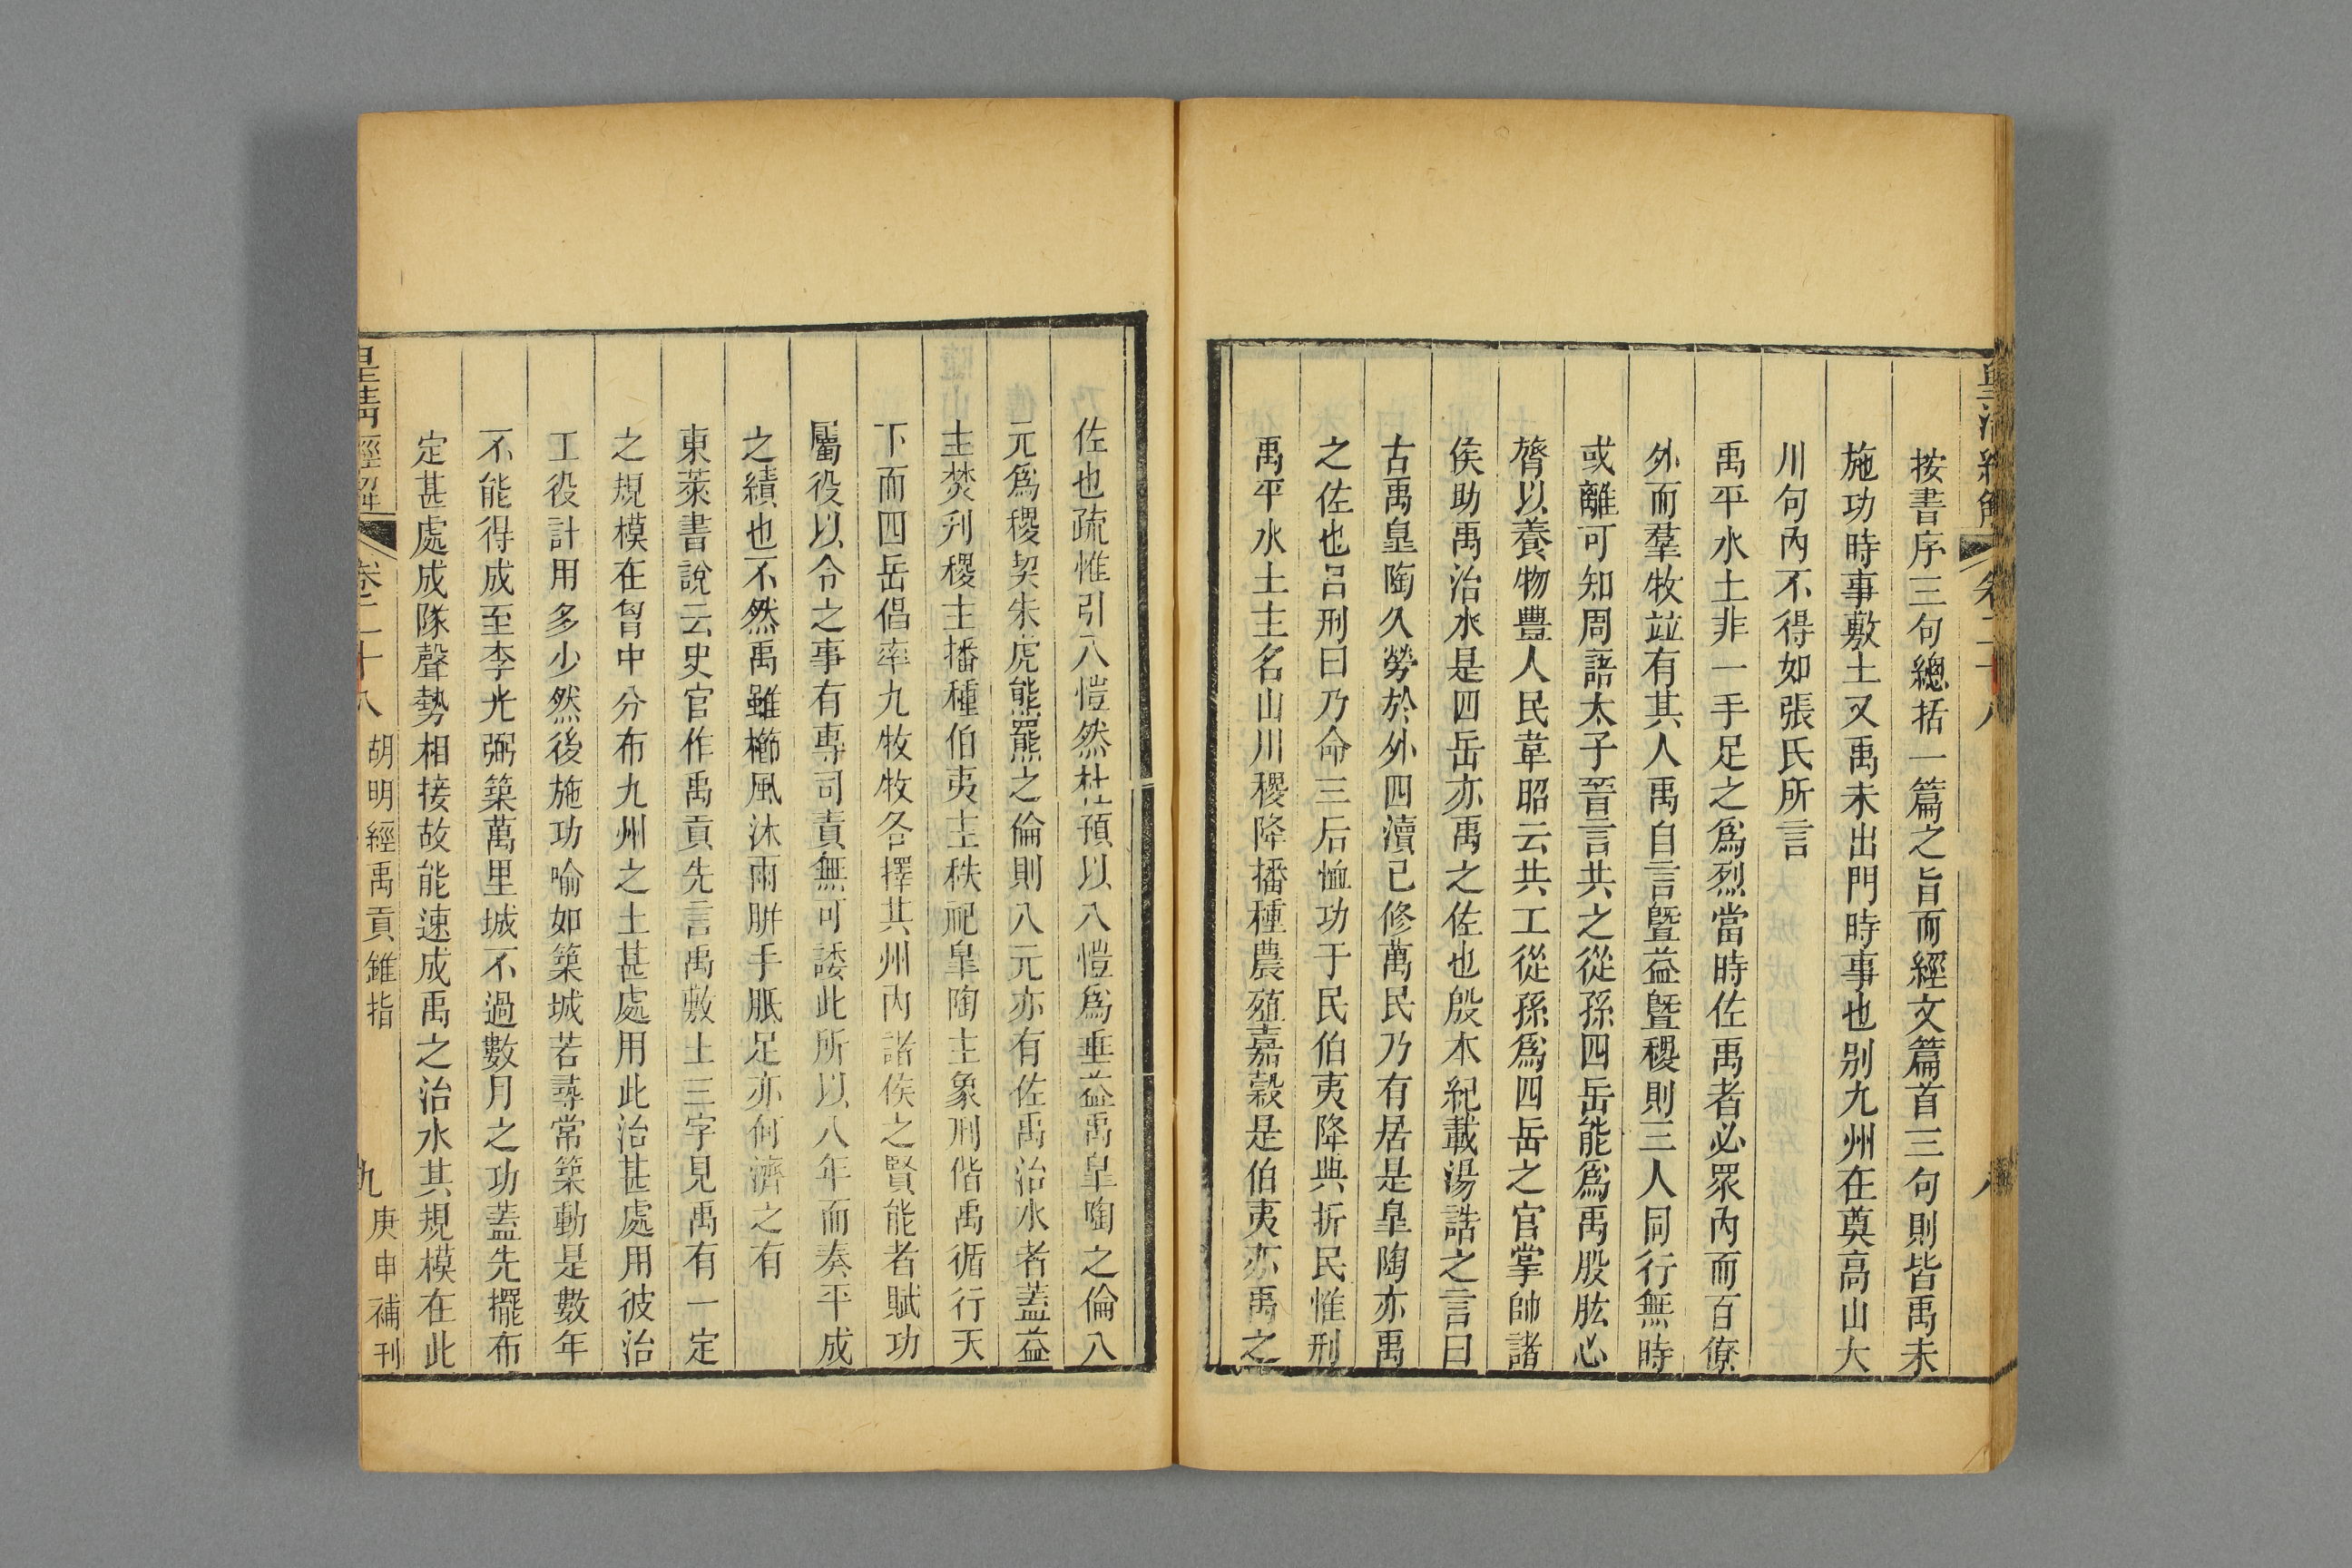 皇清經解 卷二十八 八
按書序三句總括一篇之旨而經文篇首三句則皆禹未
施功時事敷土又禹未出門時事也别九州在奠高山大
川句內不得如張氏所言
禹平水土非一手足之爲烈當時佐禹者必眾內而百僚
外而羣牧竝有其人禹自言曁益曁稷則三人同行無時
或離可知周語太子晉言共之從孫四岳能爲禹股肱心
膂以養物豐人民韋昭云共工從孫爲四岳之官掌帥諸
侯助禹治水是四岳亦禹之佐也殷本紀載湯誥之言曰
古禹皐陶久勞於外四瀆已修萬民乃有居是皐陶亦禹
之佐也呂刑曰乃命三后恤功于民伯夷降典折民惟刑
禹平水土主名山川稷降播種農殖嘉穀是伯夷亦禹之
佐也疏惟引八愷然杜預以八愷爲垂益禹皐陶之倫八
元爲稷契朱虎熊羆之倫則八元亦有佐禹治水者蓋益
主焚刋稷主播種伯夷主秩祀皐陶主象刑偕禹循行天
下而四岳倡率九牧牧各擇其州內諸侯之賢能者賦功
屬役以令之事有專司責無可諉此所以八年而奏平成
之績也不然禹雖櫛風沐雨胼手胝足亦何濟之有
東萊書說云史官作禹貢先言禹敷土三字見禹有一定
之規模在胷中分布九州之土甚處用此治甚處用彼治
工役計用多少然後施功喻如築城若尋常築動是數年
不能得成至李光弼築萬里城不過數月之功蓋先擺布
定甚處成隊聲勢相接故能速成禹之治水其規模在此
皇清經解 卷二十八 胡明經禹貢錐指 九 庚申補刊